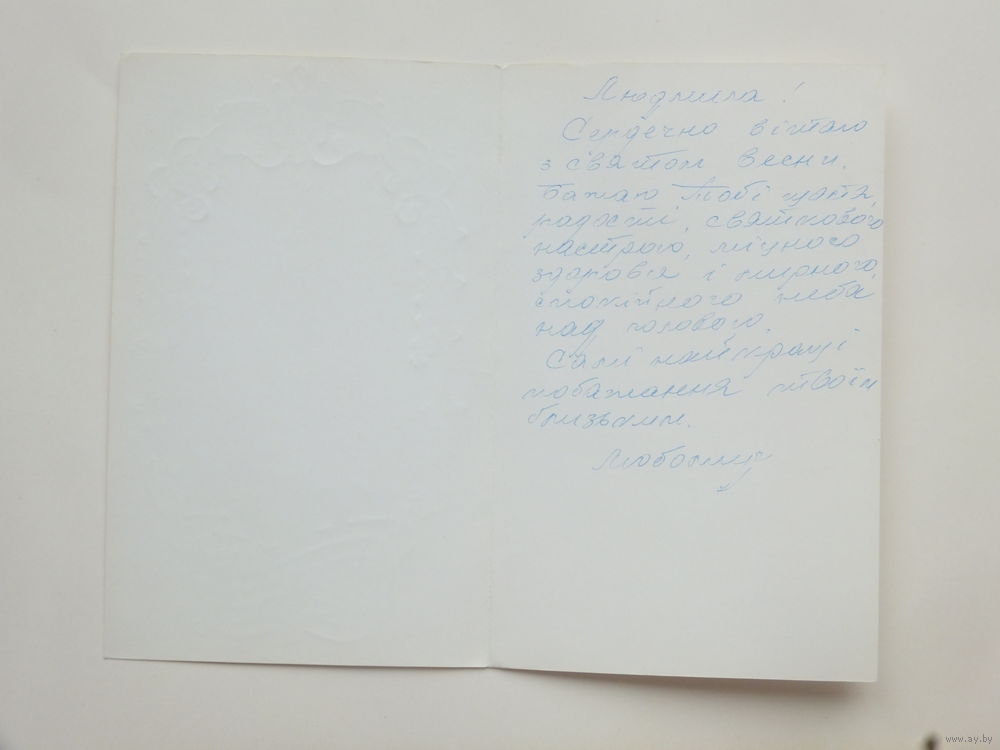 Людмила!
Сердечно вітаю
з святом весни.
Бажаю Тобі щастя,
радості, святкового
настрою, міцного
здоров'я і мирного,
спокійного неба
над головою.
Самі найкращі
побажання твоїм
близьким.
www.ay.by